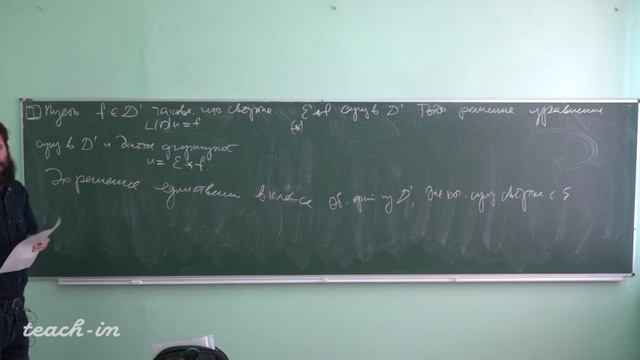 Т Пусть f ∈ D' такова, что свертка ℰ*f сущ в D' Тогда решение уравнения
L(D)u = f (*)
сущ в D' и дается формулой
u = ℰ * f.
Это решение единственно в классе об. функ из D', для кот. сущ свертка с ℰ
teach-in